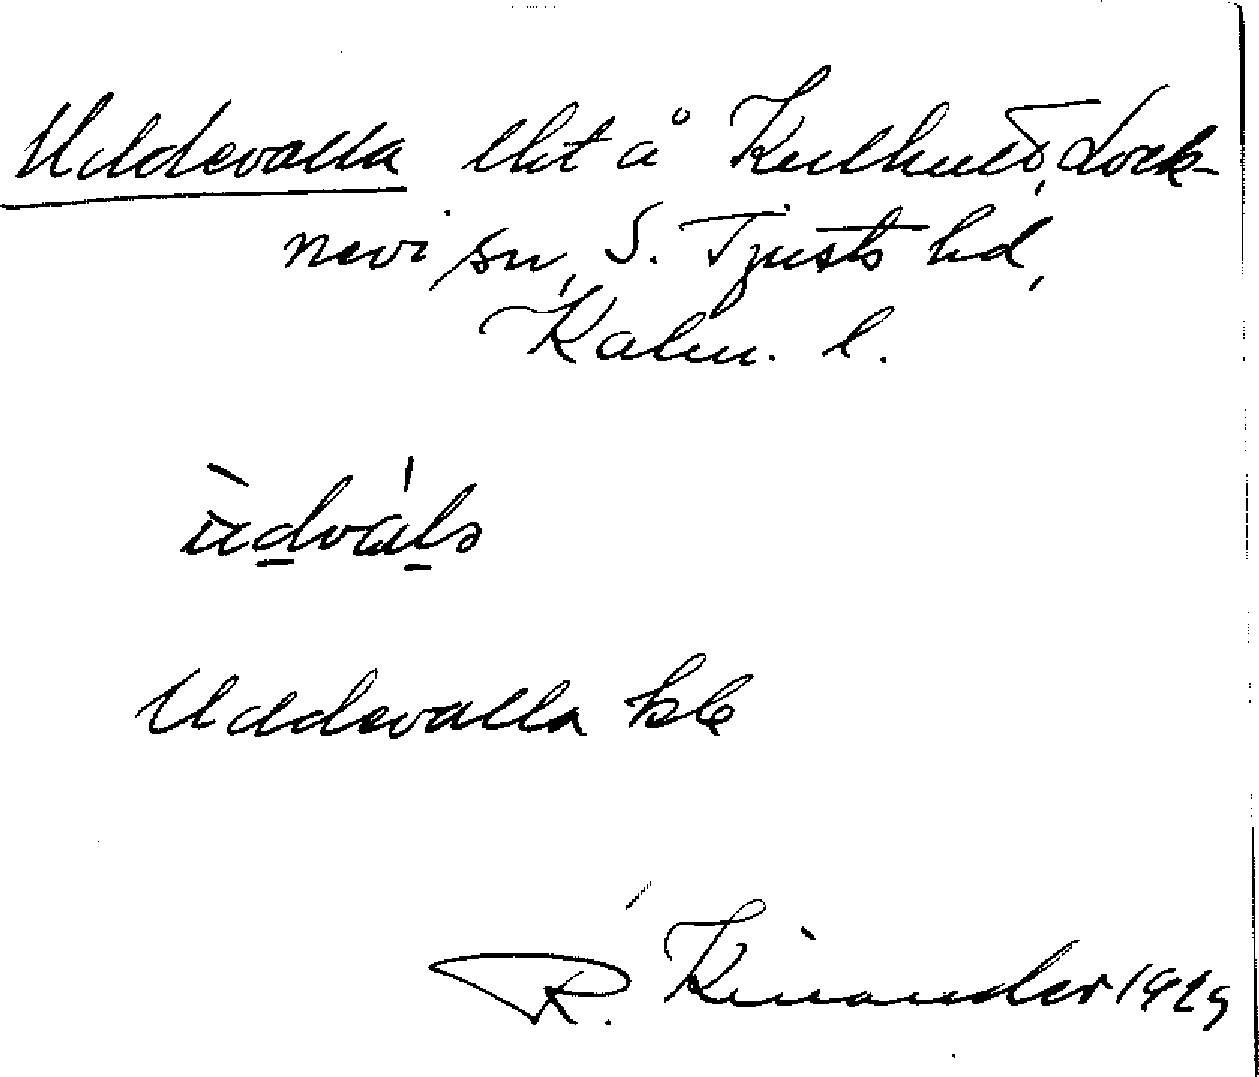 Uddevalla lht å Kulhult, Lock-
nevi sn, S. Tjusts hd,
Kalm. l.
Uddevalla
R. Kinander 1929